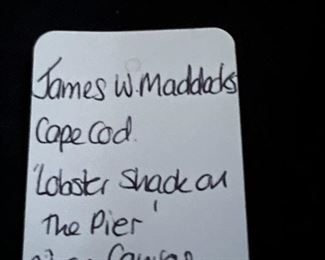 James W. Maddocks
Cape Cod.
'Lobster Shack on
The Pier'
Canvas